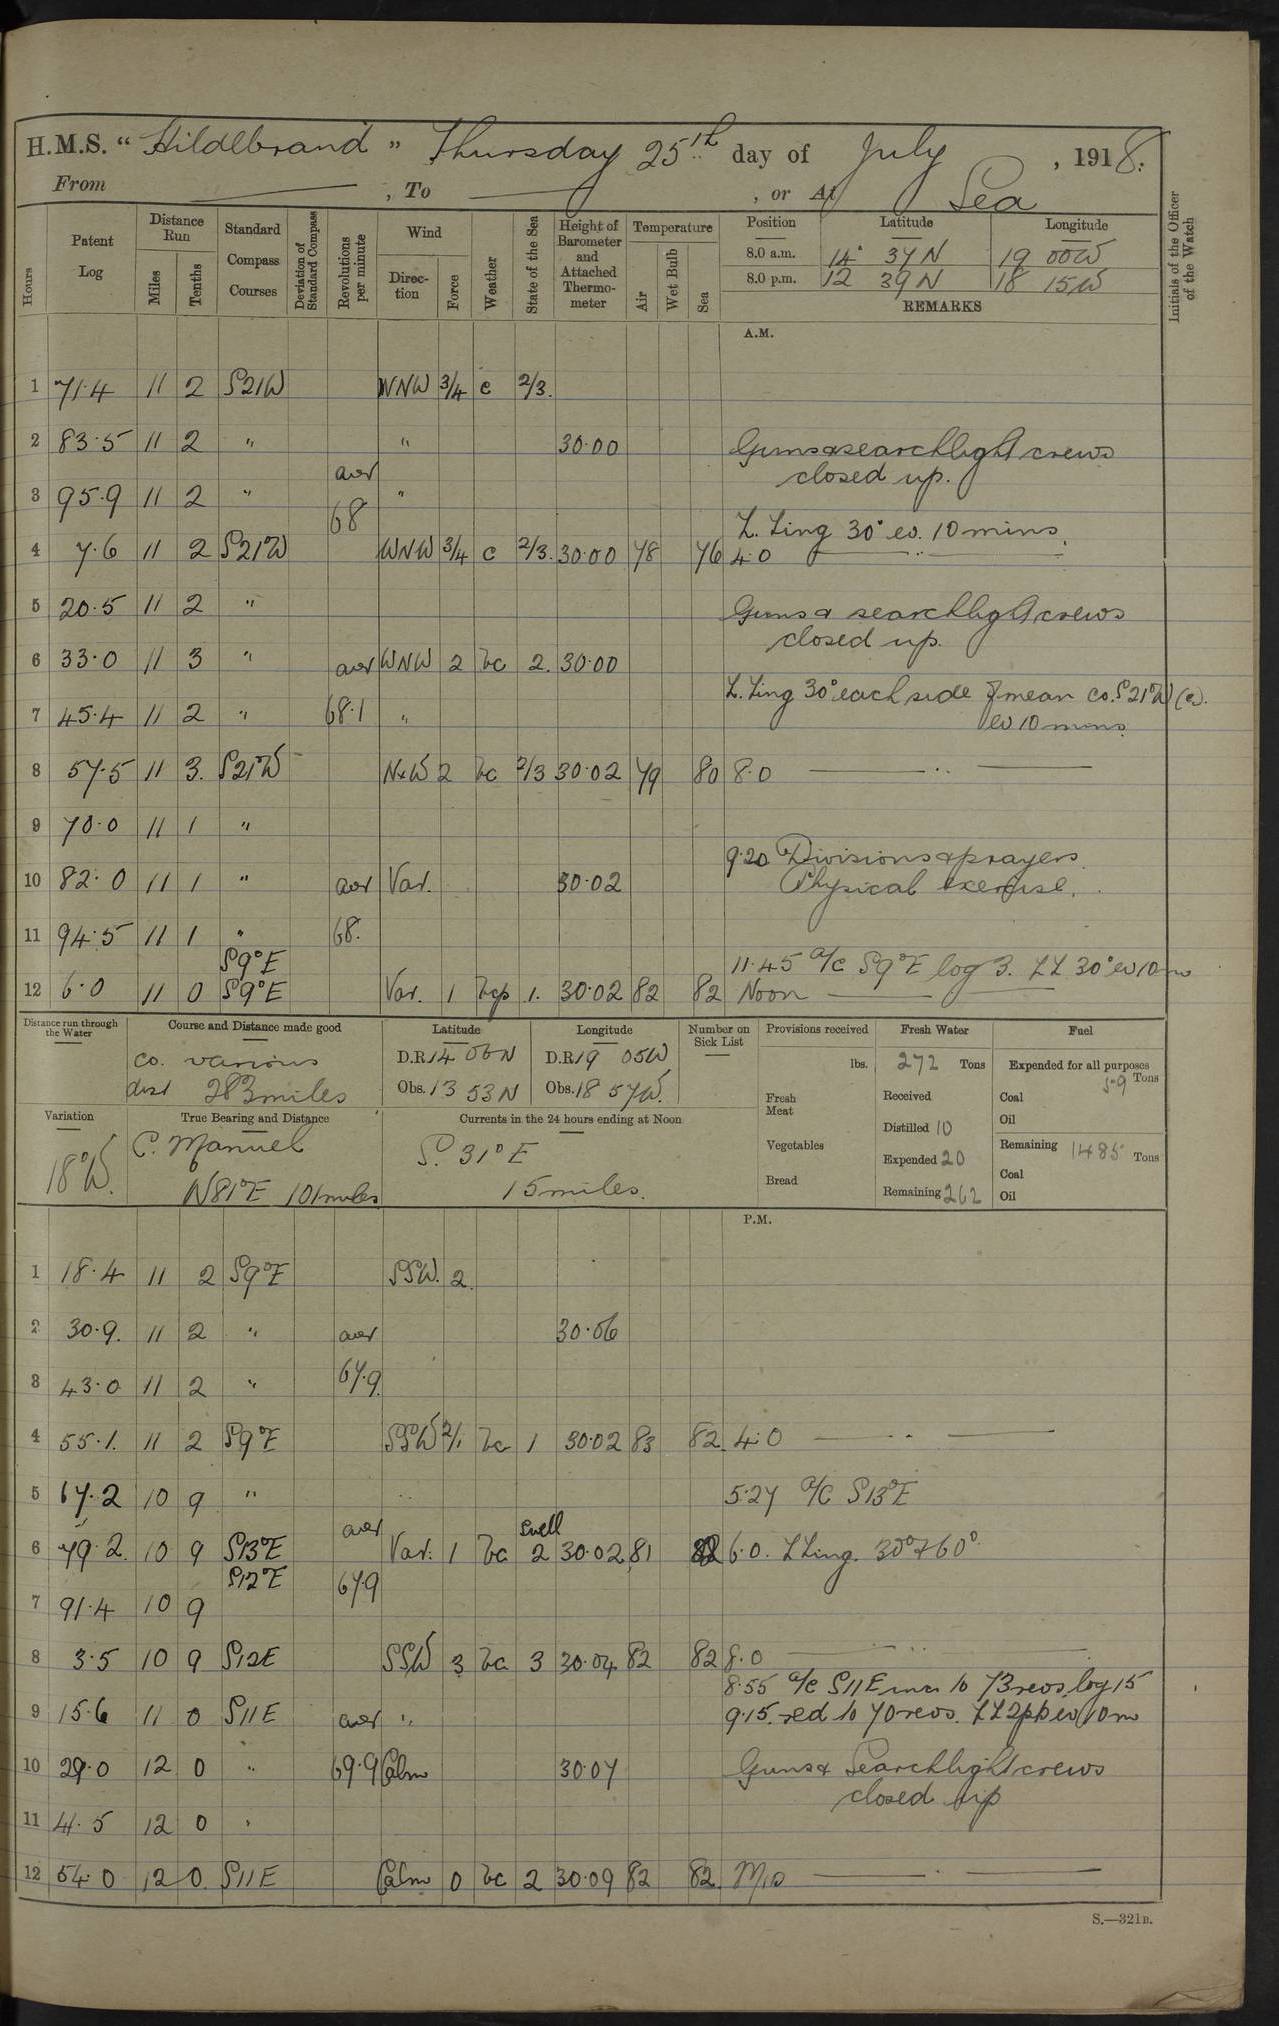 H.M.S. "Hildebrand" Thursday 25th day of July, 1918.
From ——, To ——, or At Sea
Hours
Patent Log
Distance Run
Miles
Tenths
Standard Compass Courses
Deviation of Standard Compass
Revolutions per minute
Wind
Direction
Force
Weather
State of the Sea
Height of Barometer and Attached Thermometer
Temperature
Air
Wet Bulb
Sea
Position Latitude Longitude
8.0 a.m. 14° 37 N 19 00 W
8.0 p.m. 12 39 N 18 15 W
REMARKS
Initials of the Officer of the Watch
A.M.
1 71.4 11 2 S21W WNW 3/4 c 2/3.
2 83.5 11 2 " " 30.00 Guns & searchlight crews
closed up.
aver
3 95.9 11 2 " 68 "
Z. Zing 30° ev. 10 mins.
4 7.6 11 2 S21W WNW 3/4 c 2/3. 30.00 78 76 4.0 —— .. ——
5 20.5 11 2 " Guns & searchlight crews
closed up.
6 33.0 11 3 " aver WNW 2 bc 2. 30.00
Z. Zing 30° each side of mean co. S21W (c).
7 45.4 11 2 " 68.1 " ev 10 mins.
8 57.5 11 3. S21W NxW 2 bc 2/3 30.02 79 80 8.0 —— .. ——
9 70.0 11 1 "
9.20 Divisions & prayers
10 82.0 11 1 " aver Var. 30.02 Physical exercise.
11 94.5 11 1 " 68.
S9°E 11.45 a/c S9°E log 3. ZZ 30° ev 10 m
12 6.0 11 0 S9°E Var. 1 bcp 1. 30.02 82 82 Noon ——
Distance run through the Water
Course and Distance made good
co. various
dist 283 miles
Latitude
D.R. 14 06 N
Obs. 13 53 N
Longitude
D.R. 19 05 W
Obs. 18 57 W.
Number on Sick List
Provisions received
lbs.
Fresh Meat
Vegetables
Bread
Fresh Water
272 Tons
Received
Distilled 10
Expended 20
Remaining 262
Fuel
Expended for all purposes
59 Tons
Coal
Oil
Remaining 1485 Tons
Coal
Oil
Variation
18°W.
True Bearing and Distance
C. Manuel
N81°E 101 miles
Currents in the 24 hours ending at Noon
S. 31° E
15 miles.
P.M.
1 18.4 11 2 S9°E SSW. 2
2 30.9. 11 2 " aver 30.06
3 43.0 11 2 " 67.9.
4 55.1. 11 2 S9°E SSW 2/1 bc 1 30.02 83 82. 4.0 —— .. ——
5 67.2 10 9 " .. 5.27 a/c S13°E
aver swell
6 79.2. 10 9 S13°E Var. 1 bc 2 30.02 81 82 6.0. ZZing. 30° & 60°
S12°E 67.9
7 91.4 10 9
8 3.5 10 9 S12E SSW 3 bc 3 30.04 82 82 8.0 —— ... ——
8.55 a/c S11E incr to 73 revs, log 15
9 15.6 11 0 S11E aver " 9.15. red to 70 revs. ZZ 2pts ev 10 m
10 29.0 12 0 " 69.9 Calm 30.07 Guns & Searchlight crews
closed up
11 41.5 12 0 "
12 54.0 12 0. S11E Calm 0 bc 2 30.09 82 82. Mid —— . ——
S.—321B.